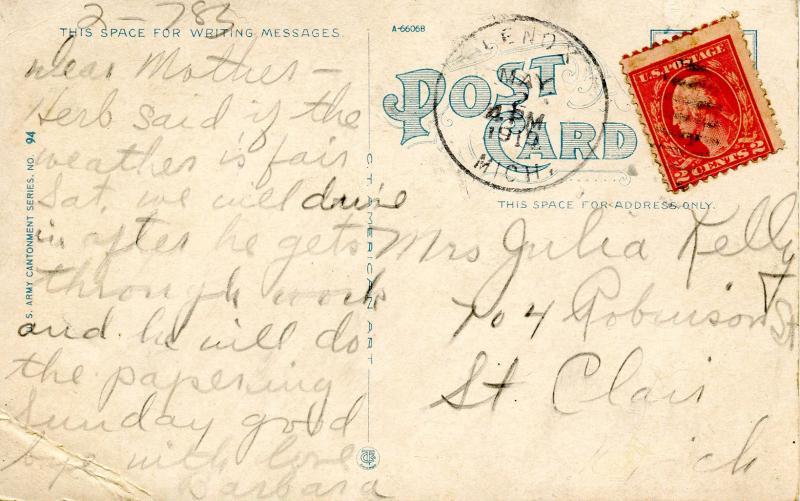 2-783
THIS SPACE FOR WRITING MESSAGES.
Dear Mother —
Herb said if the
weather is fair
Sat. we will drive
in after he gets
through work
and he will do
the papering
Sunday good
bye with love
Barbara
U.S. ARMY CANTONMENT SERIES, NO. 94
C.T. AMERICAN ART
A-66068
POST CARD
MAY
2
PM
1919
MICH.
U.S. POSTAGE
2 CENTS 2
THIS SPACE FOR ADDRESS ONLY.
Mrs Julia Kelly
704 Robinson St
St Clair
Mich